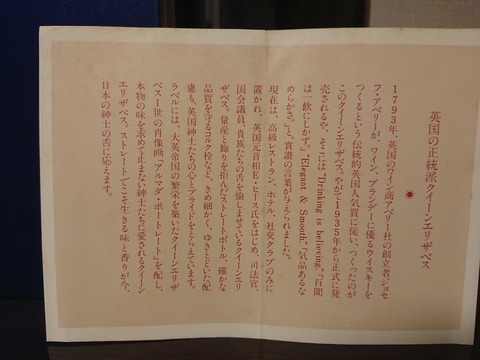 英国の正統派クイーンエリザベス
1793年、英国のワイン商アベリー社の創立者ジョセ
フ・アベリーが、ワイン、ブランデーに優るウイスキーを
つくるという伝統的英国人気質に従い、つくったのが
このクイーンエリザベス。やがて1935年から正式に発
売されるや、そこには"Drinking is believing."「百聞
は一飲にしかず。」"Elegant & Smooth."「気品あるな
めらかさ。」と、賞讃の言葉が与えられました。
現在は、高級レストラン、ホテル、社交クラブのみに
置かれ、英国元首相E・ヒース氏をはじめ、司法官、
国会議員、貴族たちの舌を愉しませているクイーンエリ
ザベス。量産と飾りを拒んだストレートボトル。確かな
品質を守るコルク栓など、きめ細かく、ゆきとどいた配
慮も、英国紳士たちの心とプライドをとらえています。
ラベルには、大英帝国の繁栄を築いたクイーンエリザ
ベスI世の肖像画「アルマダ・ポートレート」を配し、
本物の味を求めて止まない紳士たちに愛されるクイーン
エリザベス。ストレートでこそ生きる味と香りが今、
日本の紳士の舌に応えます。